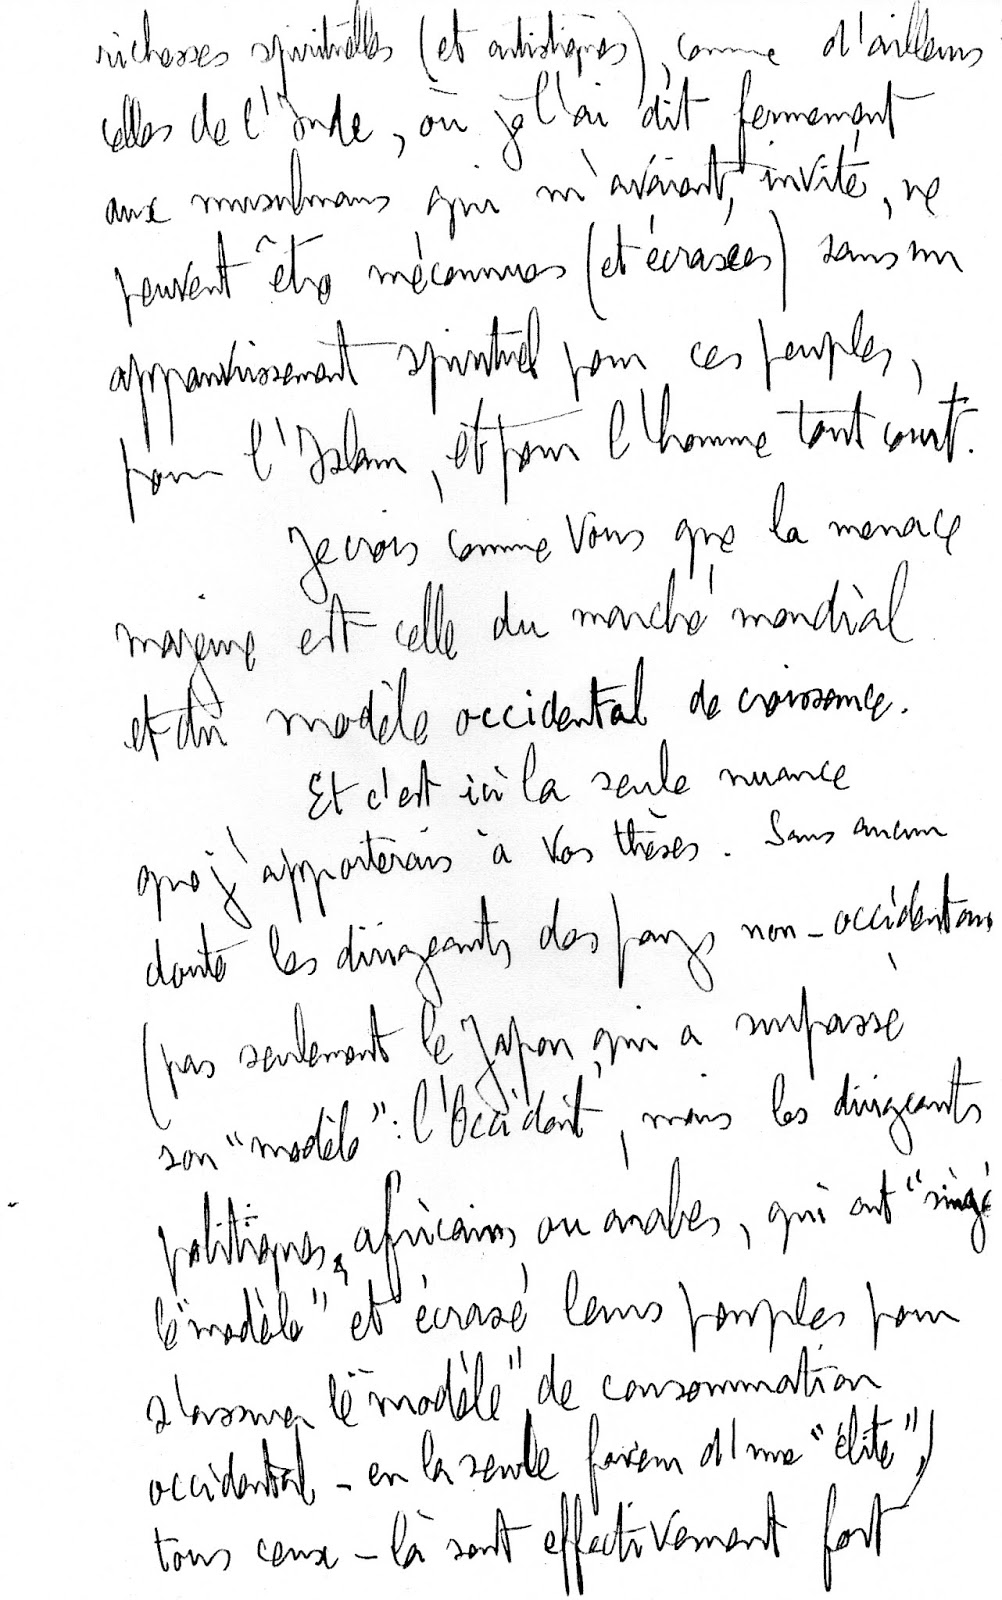 richesses spirituelles (et artistiques), comme d'ailleurs
celles de l'Inde, où je l'ai dit fermement
aux musulmans qui m'avaient invité, ne
peuvent être méconnues (et écrasées) sans un
appauvrissement spirituel pour ces peuples,
pour l'Islam, et pour l'homme tout court.
Je crois comme vous que la menace
majeure est celle du marché mondial
et du modèle occidental de croissance.
Et c'est ici la seule nuance
que j'apporterais à vos thèses. Sans aucun
doute les dirigeants des pays non-occidentaux
(pas seulement le Japon qui a surpassé
son "modèle": l'Occident, mais les dirigeants
politiques, africains, ou arabes, qui ont "singé
le "modèle" et écrasé leurs peuples pour
s'assurer le "modèle" de consommation
occidental - en la seule faveur d'une "élite",)
tous ceux-là sont effectivement fort